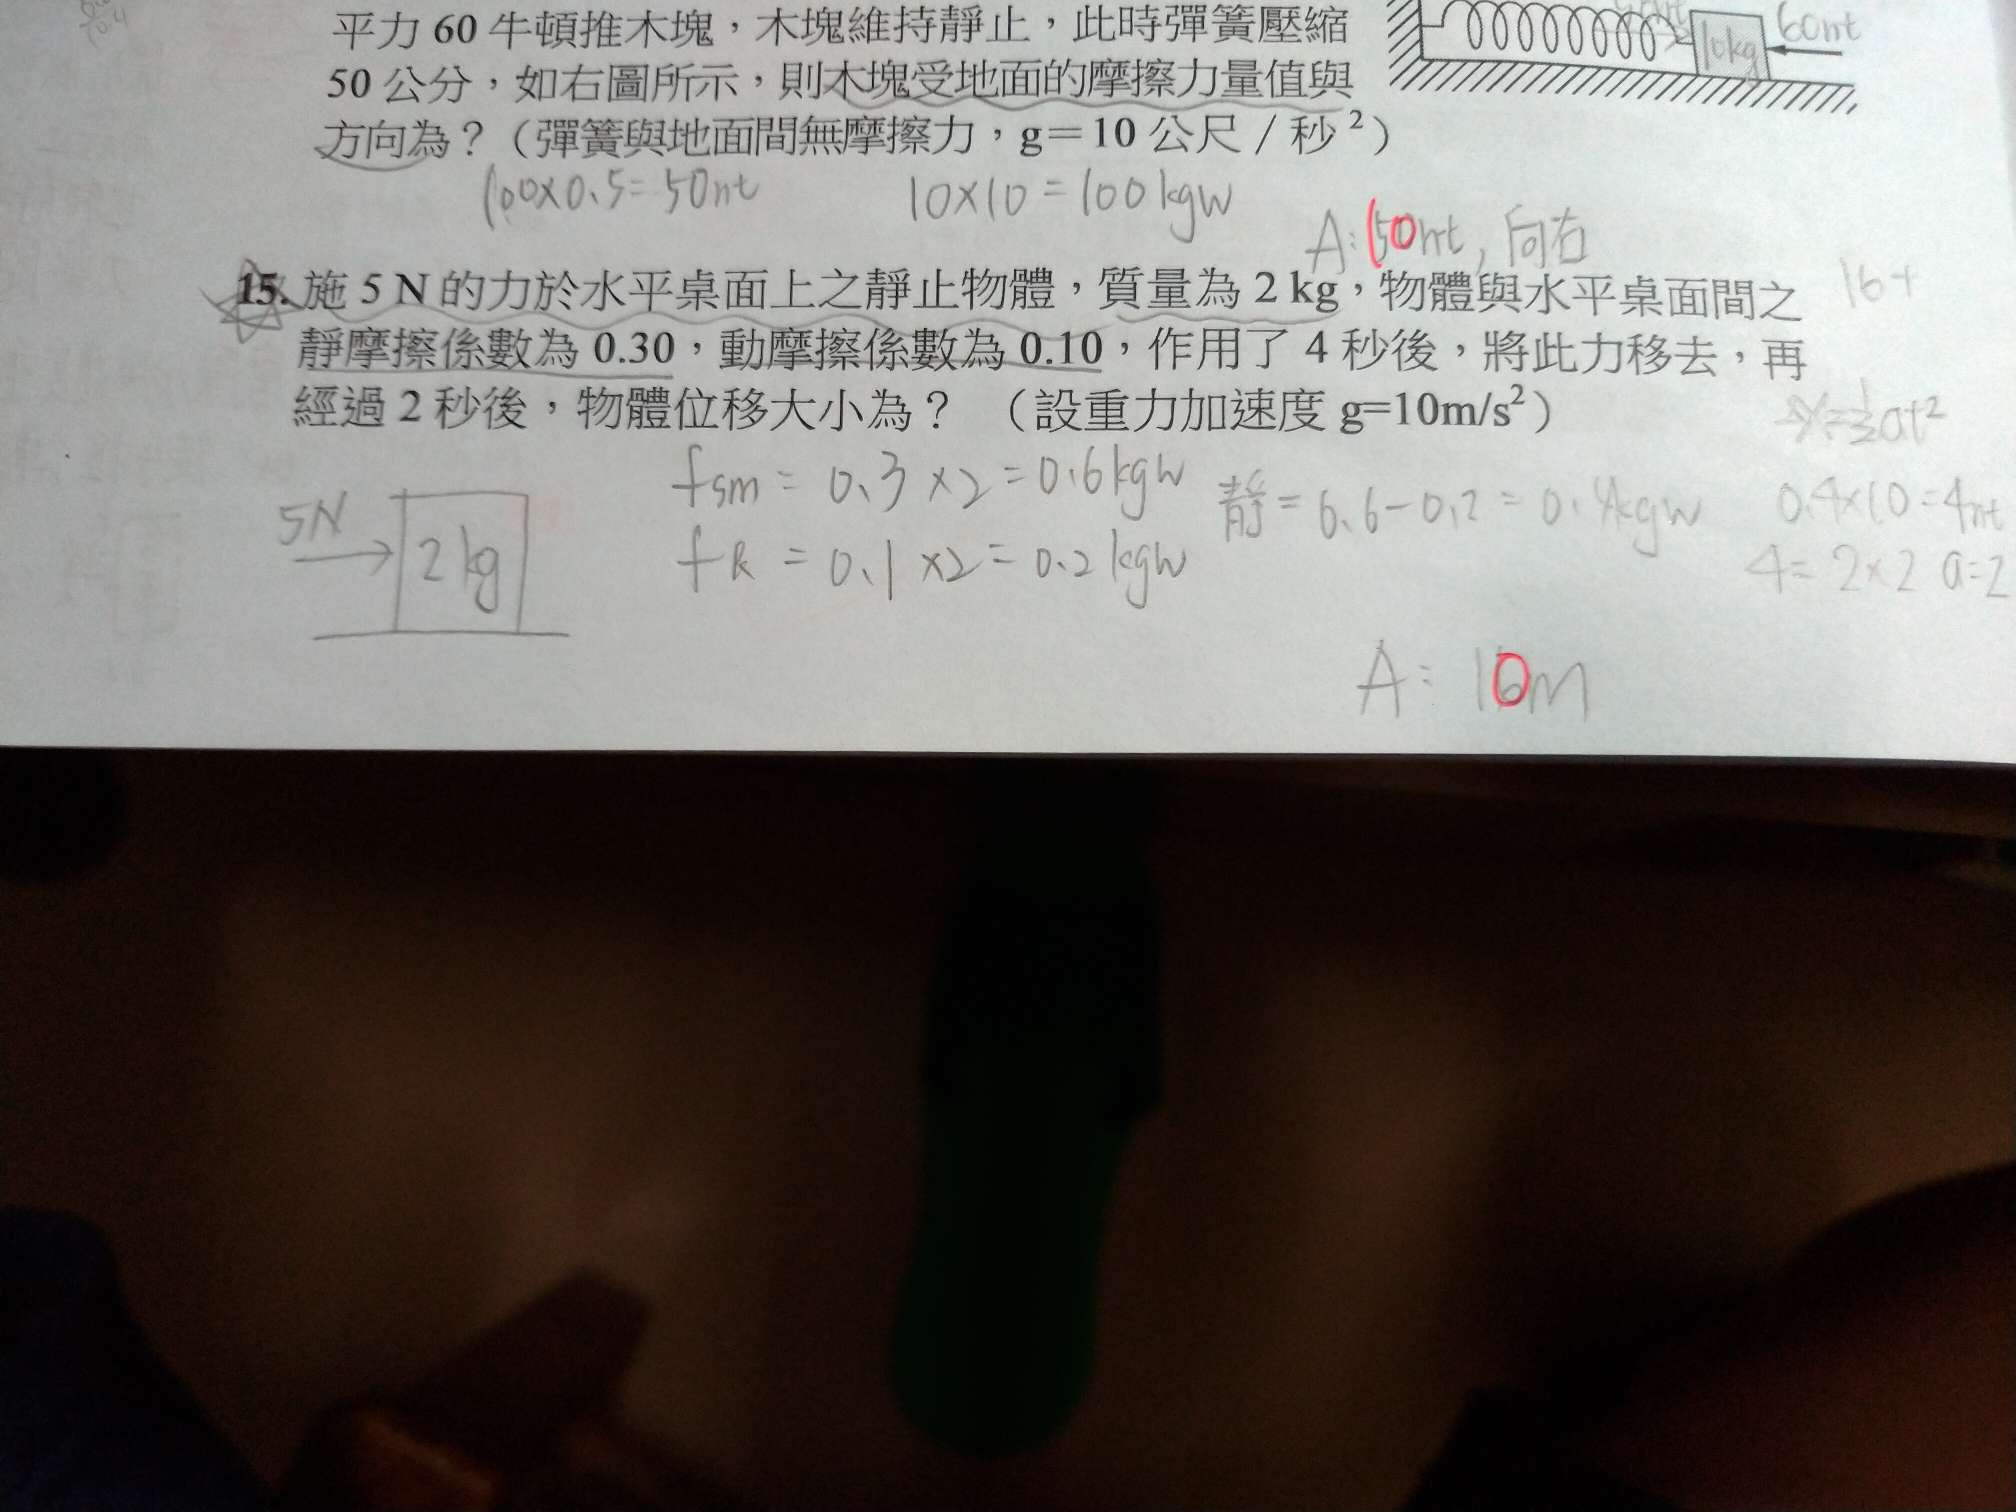 平力 60 牛頓推木塊，木塊維持靜止，此時彈簧壓縮
50 公分，如右圖所示，則木塊受地面的摩擦力量值與
方向為？（彈簧與地面間無摩擦力，g＝10 公尺／秒²）
10kg
60nt
100×0.5=50nt
10×10=100kgw
A:10nt, 向右
15. 施 5 N 的力於水平桌面上之靜止物體，質量為 2 kg，物體與水平桌面間之
16+
靜摩擦係數為 0.30，動摩擦係數為 0.10，作用了 4 秒後，將此力移去，再
經過 2 秒後，物體位移大小為？ （設重力加速度 g=10m/s²）
=½at²
5N
2kg
fsm = 0.3×2=0.6kgw
靜=0.6-0.2=0.4kgw
0.4×10=4nt
fk = 0.1×2=0.2kgw
4=2×2 a=2
A: 10m